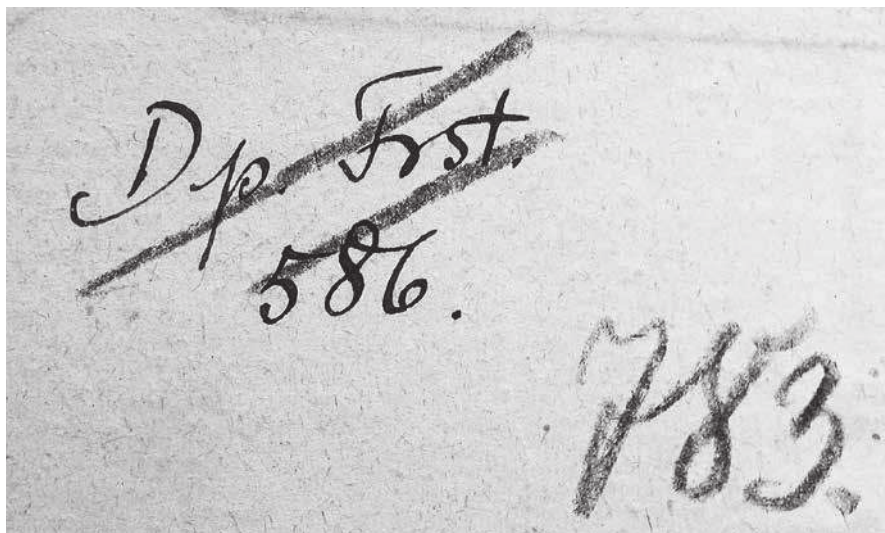 Dp. Frst.
586.
783.